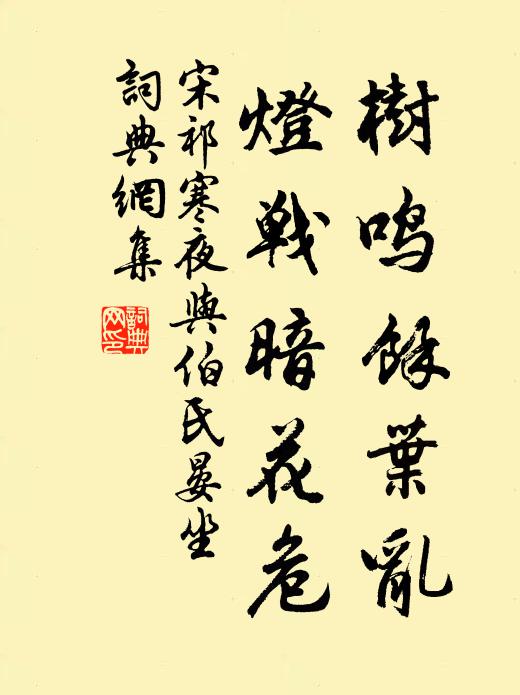 樹鳴餘葉亂
燈戰暗花危
宋祁寒夜與伯氏晏坐
詞典網集
詞典
网印